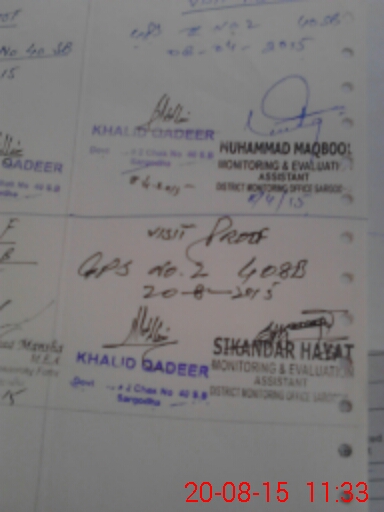 No 40 SB
15
GPS No.2 40SB
08-04-2015
KHALID QADEER
Govt
2 Chak No 40 S.B
Sargodha
8-4-2015
MUHAMMAD MAQBOOL
MONITORING & EVALUATI
ASSISTANT
DISTRICT MONITORING OFFICE SARGO
8/4/15
QADEER
VISIT PROOF
GPS No.2 40SB
20-8-2015
KHALID QADEER
Govt
2 Chak No 40 S.B
Sargodha
SIKANDAR HAYAT
MONITORING & EVALUATION
ASSISTANT
DISTRICT MONITORING OFFICE SARGO
Mansha
M.E.A
15
20-08-15 11:33